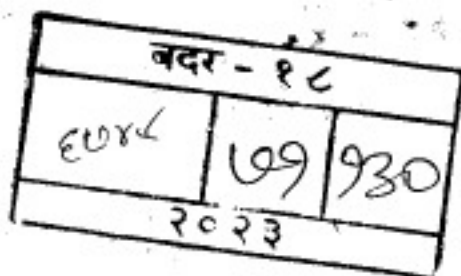 बदर - १८
६७४८ ७१ १३०
२०२३